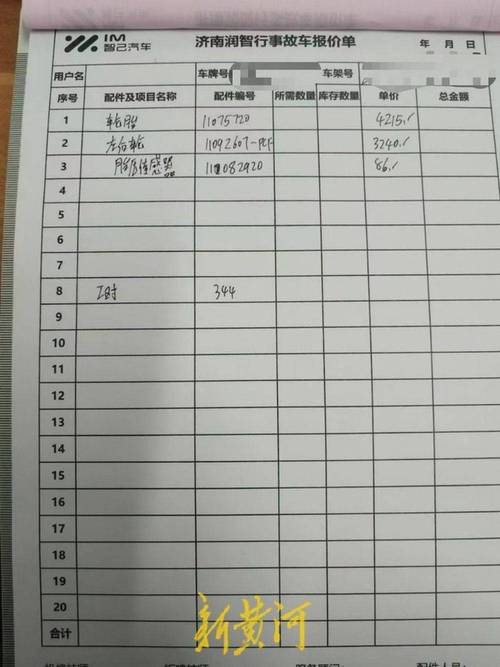 IM
智己汽车
济南润智行事故车报价单
年 月 日
用户名 车牌号 车架号
序号 配件及项目名称 配件编号 所需数量 库存数量 单价 总金额
1 轮胎 11075720 4215.
2 左后轮 11092607-PCF 3240.
3 胎压传感器 86.
4
5
6
7
8 工时 344
9
10
11
12
13
14
15
16
17
18
19
20
合计
新黄河